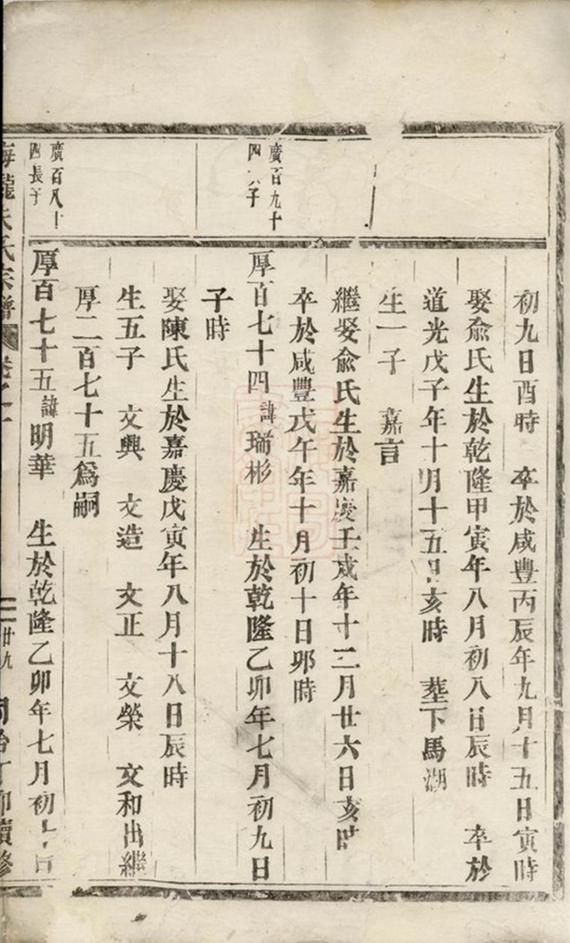 初九日酉時 卒於咸豐丙辰年九月十五日寅時
娶俞氏生於乾隆甲寅年八月初八日辰時 卒於
道光戊子年十月十五日亥時 塟下馬湖
生一子 嘉言
繼娶俞氏生於嘉慶壬戌年十二月廿六日亥時
卒於咸豐戊午年十月初十日卯時
廣百九十
四 子
厚百七十四諱瑞彬 生於乾隆乙卯年七月初九日
子時
娶陳氏生於嘉慶戊寅年八月十八日辰時
生五子 文興 文造 文正 文榮 文和出繼
厚二百七十五爲嗣
廣百八十
四長子
厚百七十五諱明華 生於乾隆乙卯年七月初 日
氏宗譜 廿九 丁卯續修